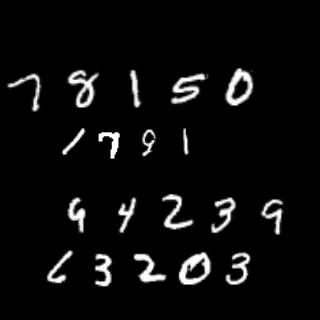 78150
1791
94239
63203